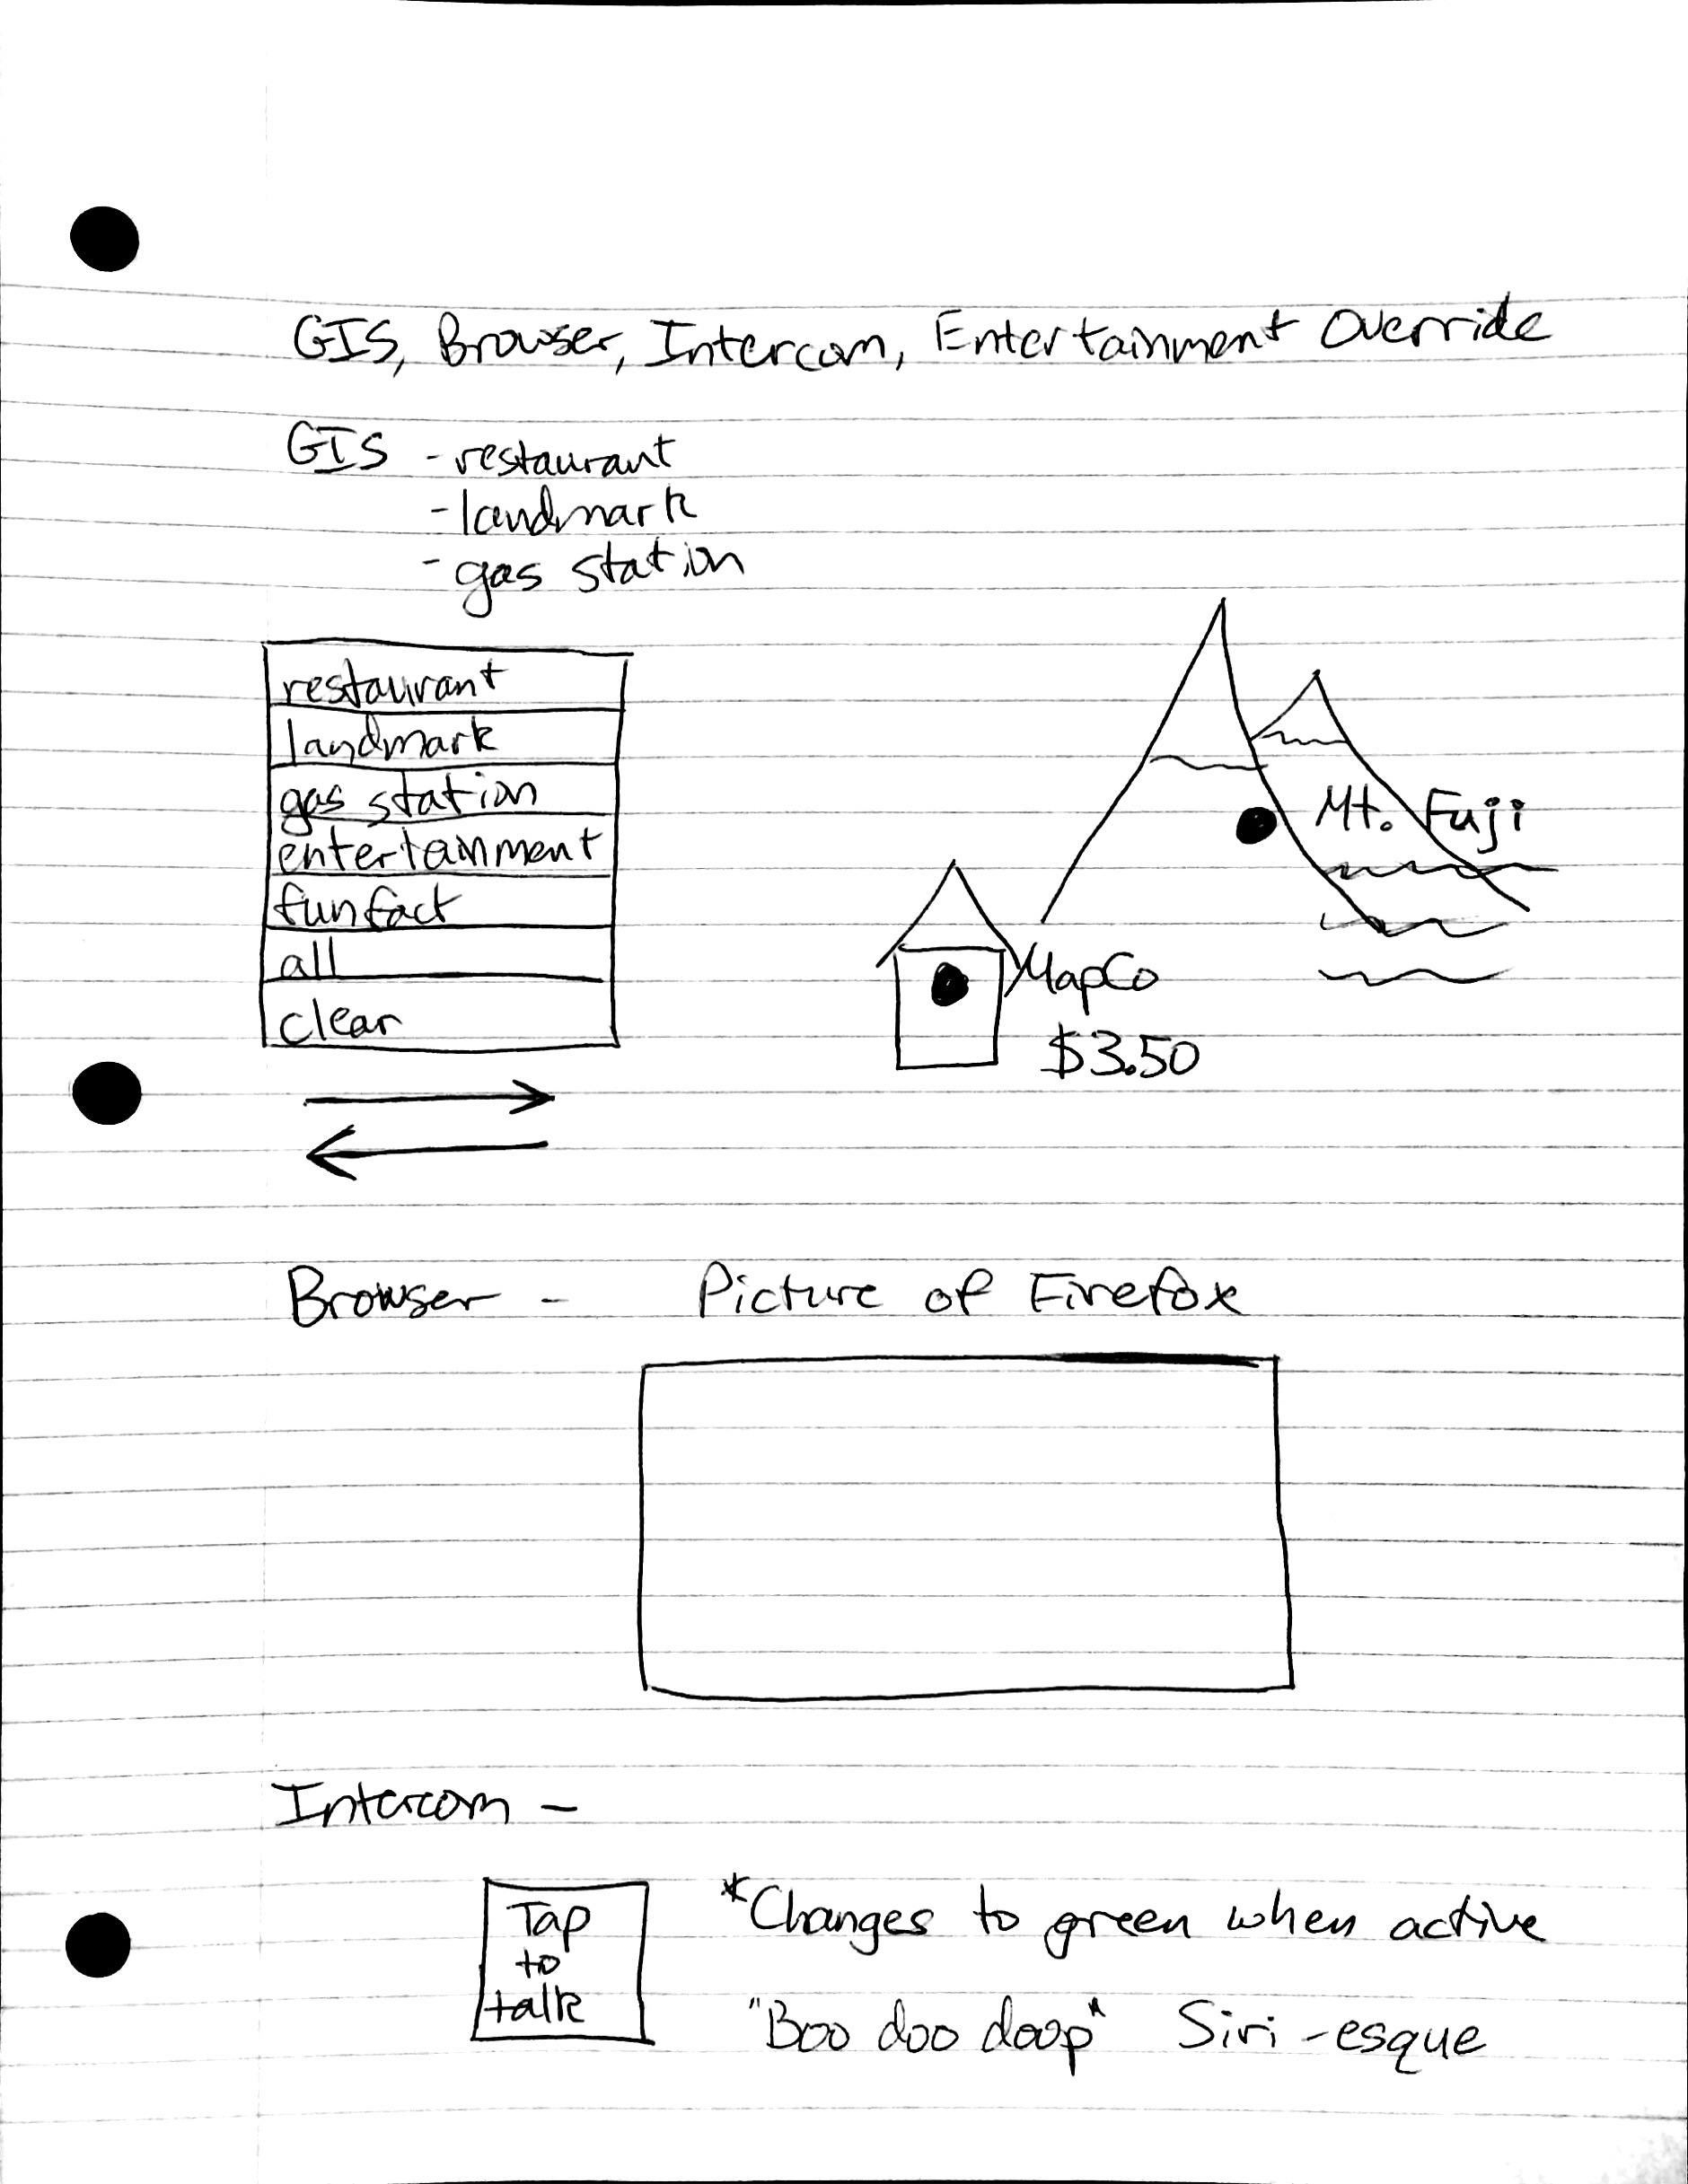 GIS, Browser, Intercom, Entertainment Override
GIS - restaurant
- landmark
- gas station
restaurant
landmark
gas station
entertainment
fun fact
all
clear
Mt. Fuji
MapCo
$3.50
Browser - Picture of Firefox
Intercom -
Tap
to
talk
*Changes to green when active
"Boo doo doop" Siri-esque